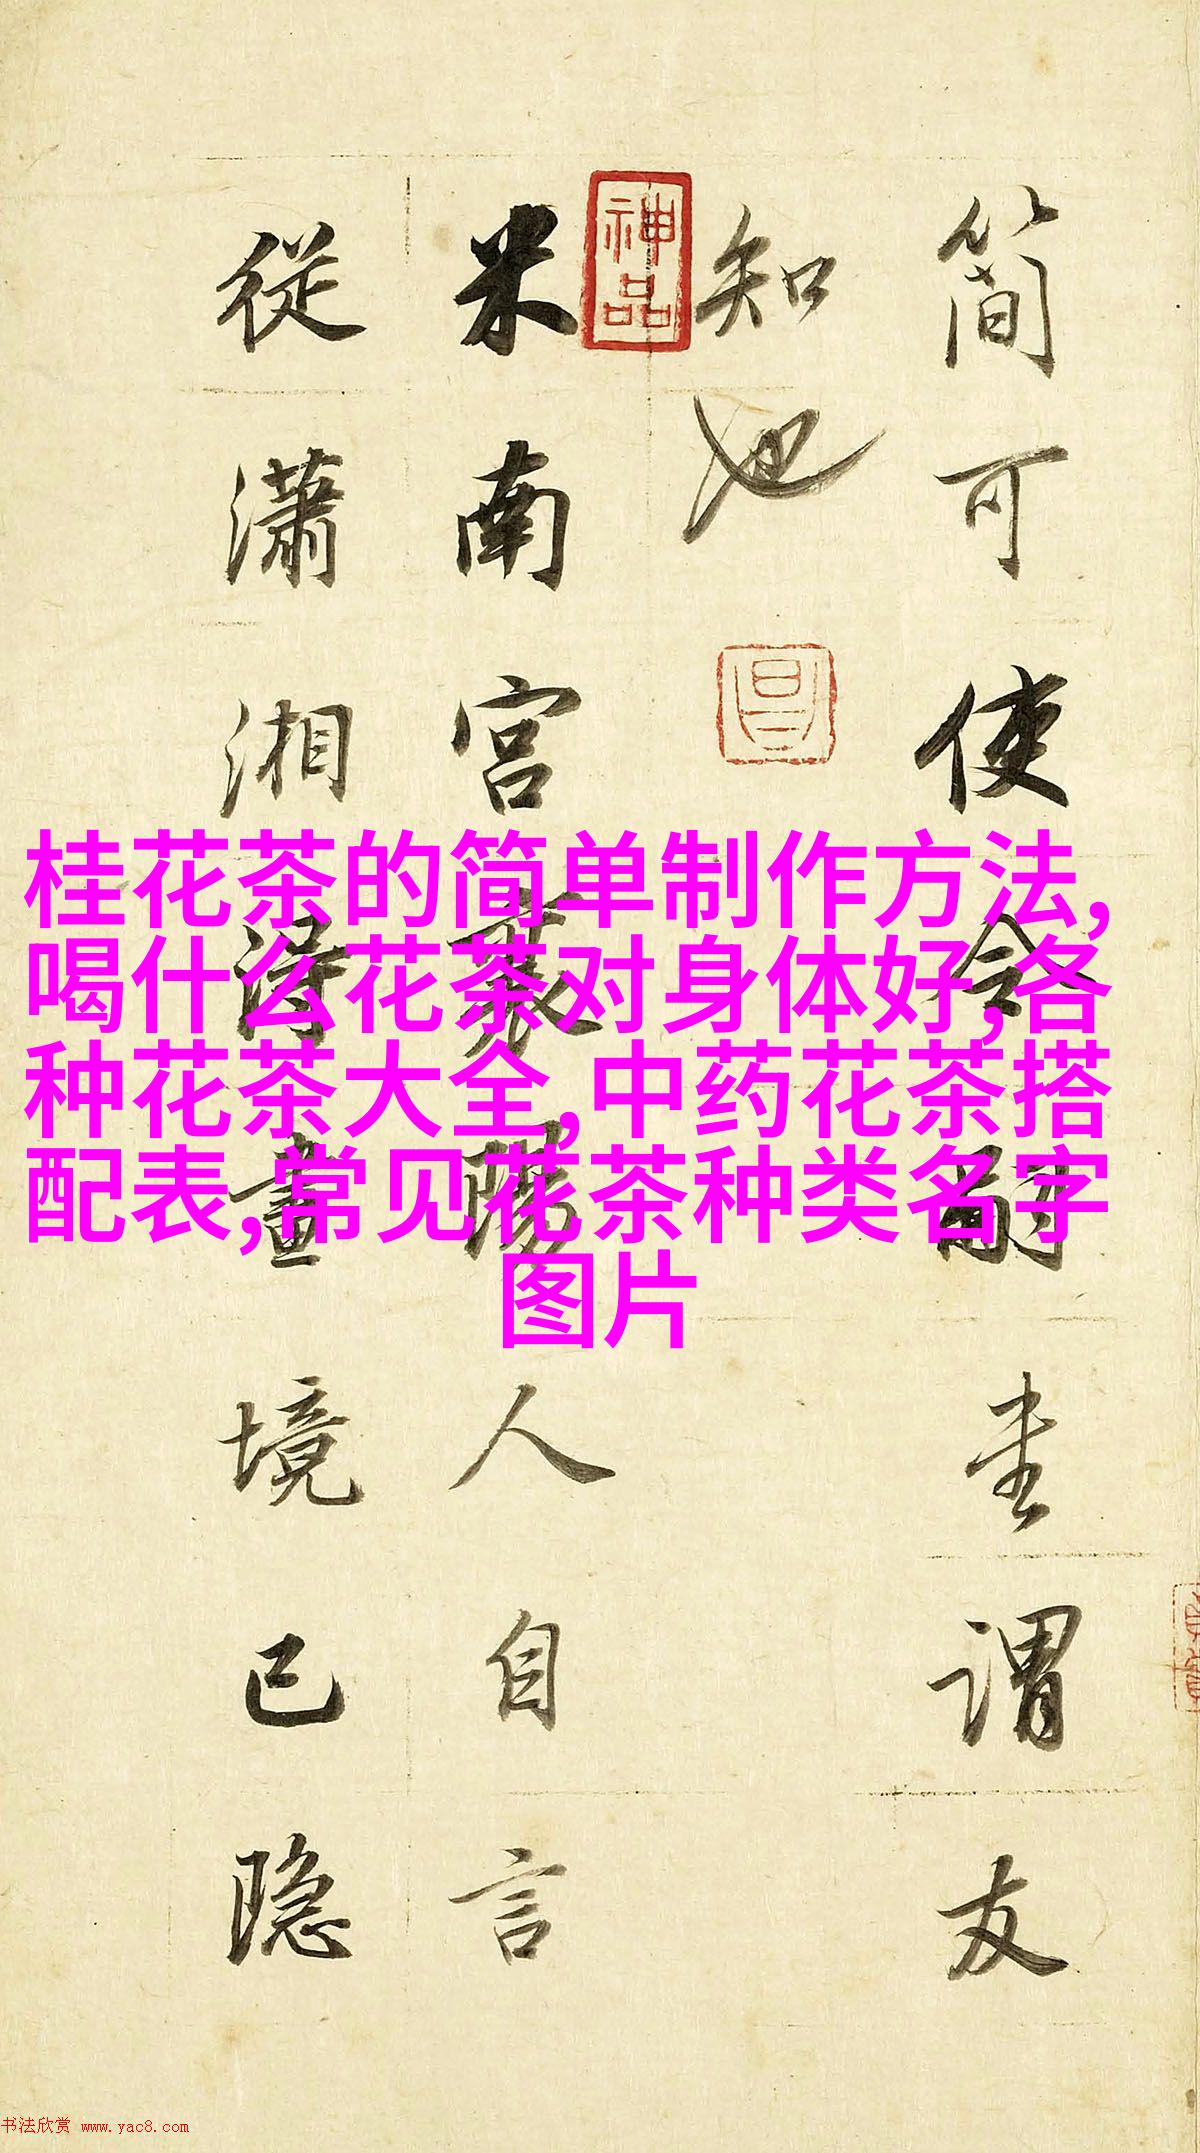 桂花茶的简单制作方法,
喝什么花茶对身体好,各
种花茶大全,中药花茶搭
配表,常见花茶种类名字
图片
简可使令嗣圭谓友
知也
米南宫襄阳人自言
从潇湘得画境已隐
神品
昌
书法欣赏 www.yac8.com